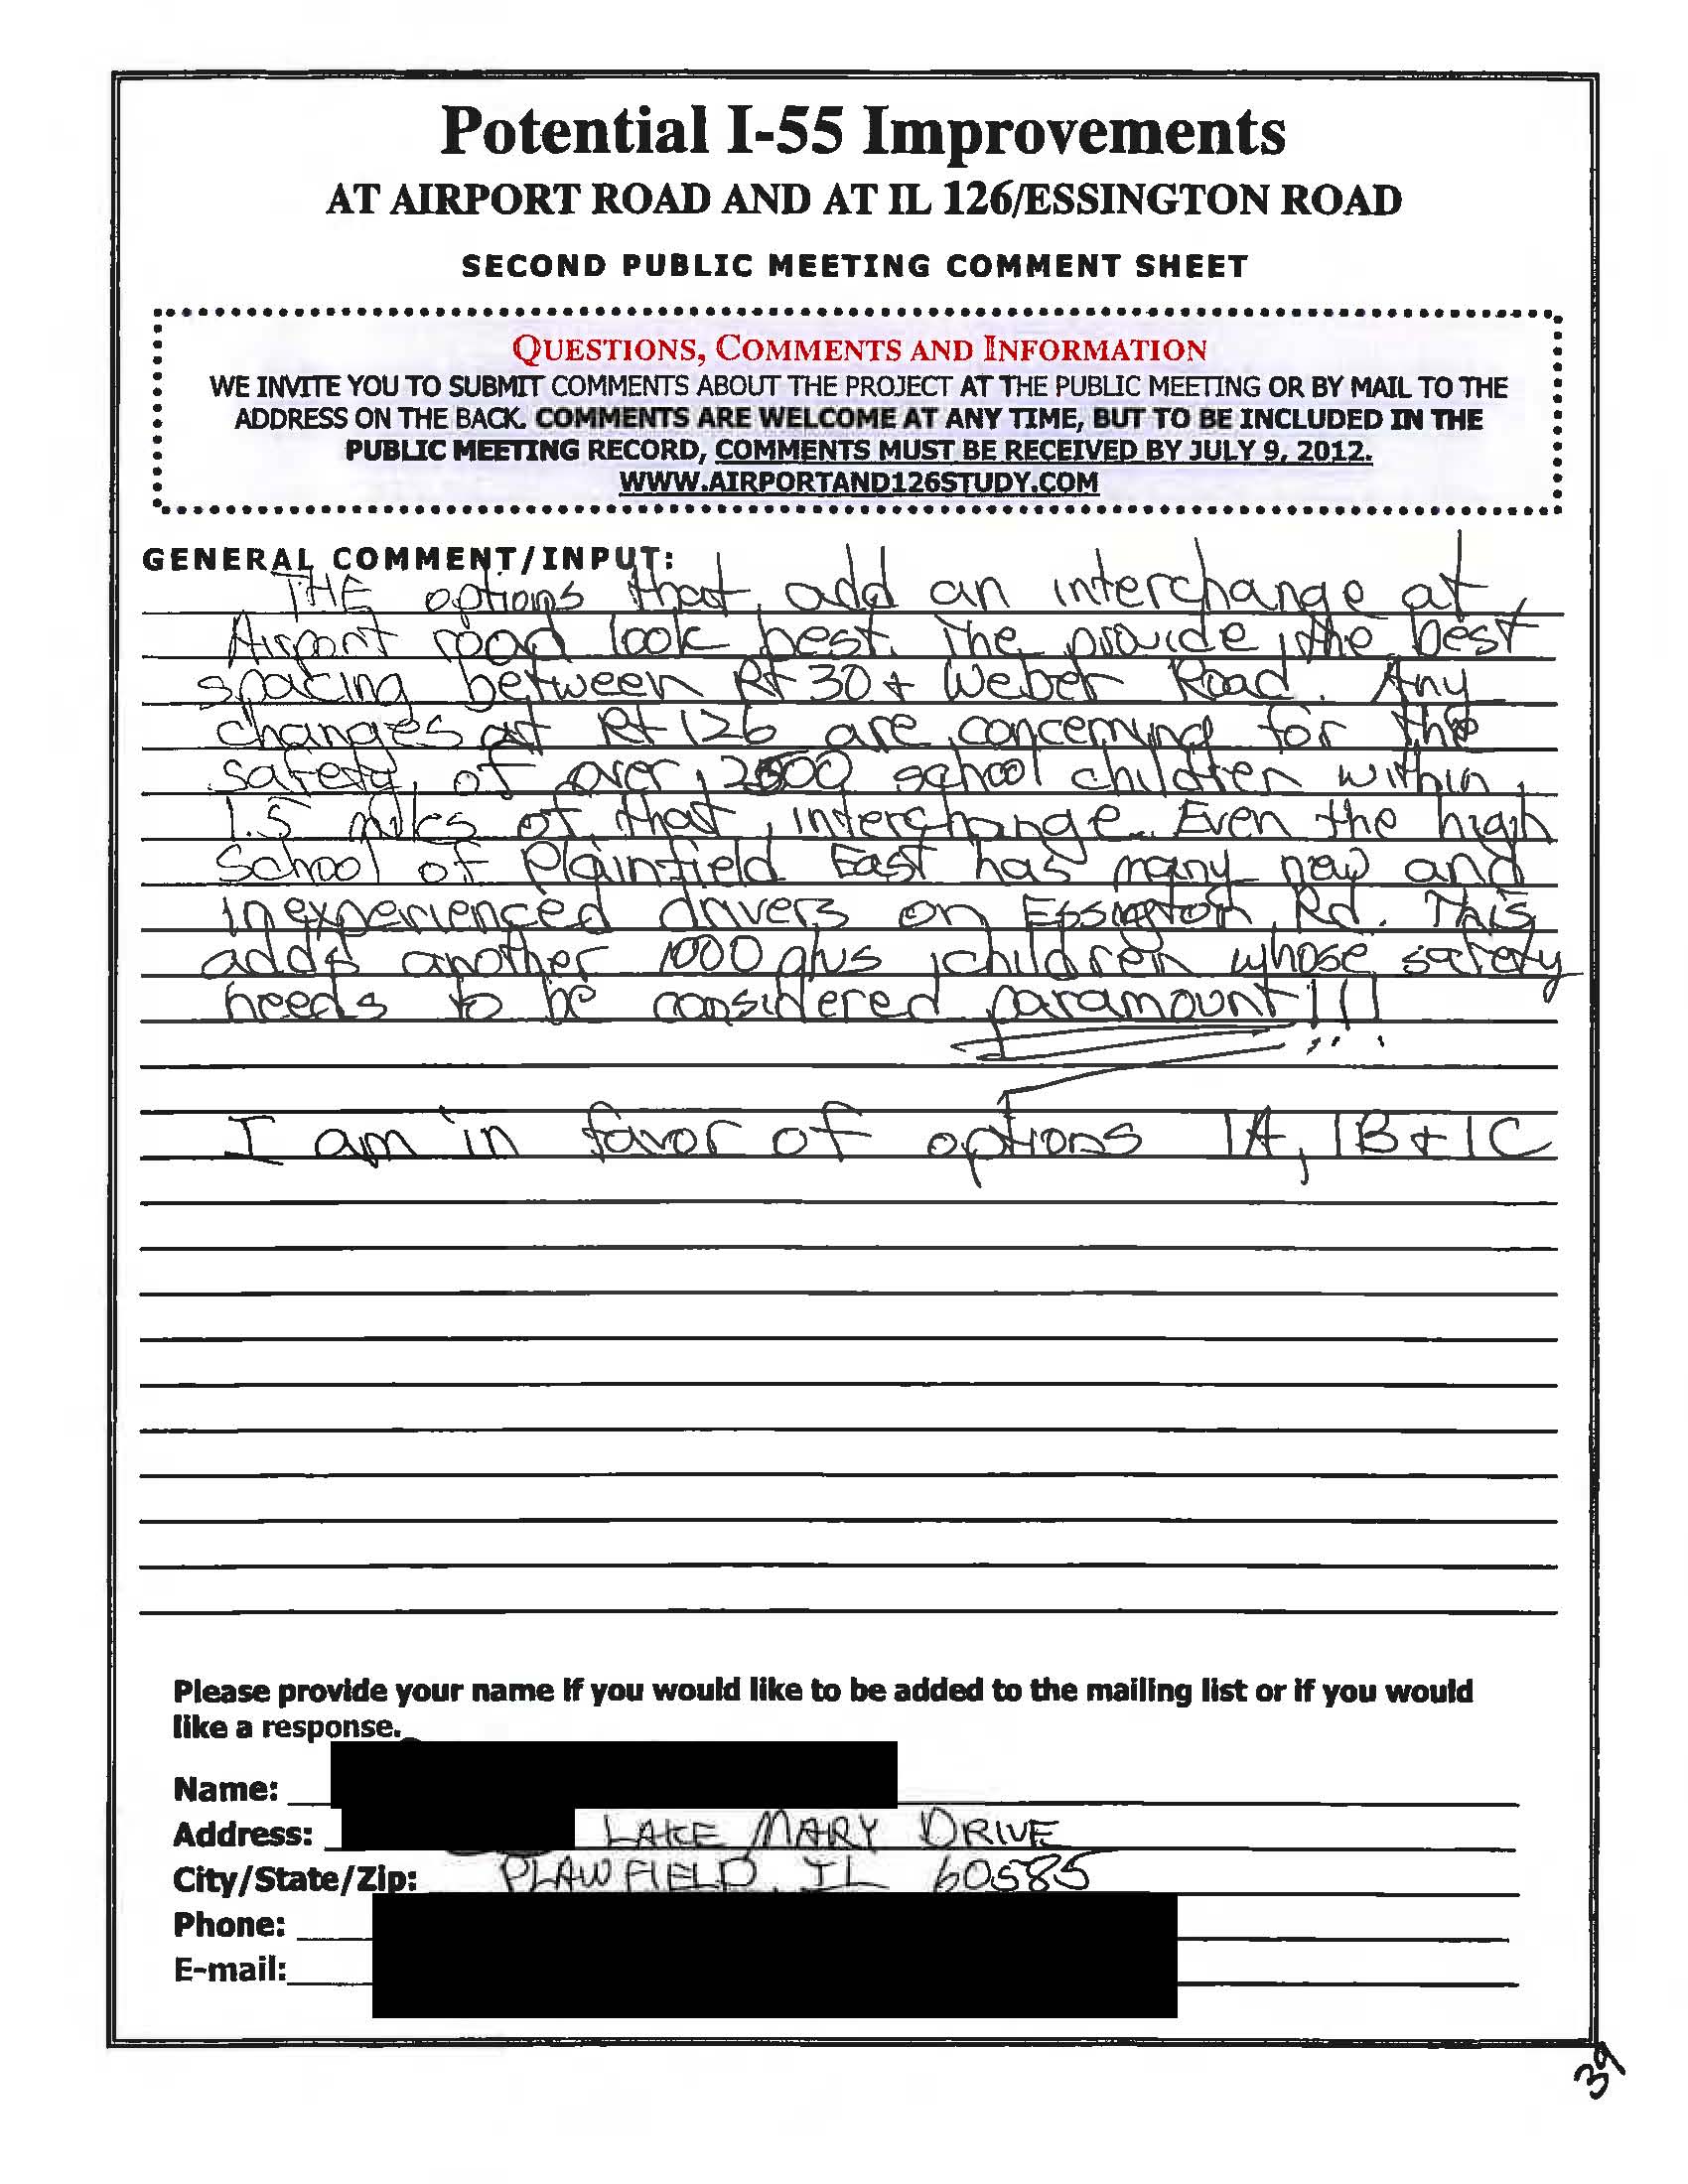 Potential I-55 Improvements
AT AIRPORT ROAD AND AT IL 126/ESSINGTON ROAD
SECOND PUBLIC MEETING COMMENT SHEET
QUESTIONS, COMMENTS AND INFORMATION
WE INVITE YOU TO SUBMIT COMMENTS ABOUT THE PROJECT AT THE PUBLIC MEETING OR BY MAIL TO THE
ADDRESS ON THE BACK. COMMENTS ARE WELCOME AT ANY TIME, BUT TO BE INCLUDED IN THE
PUBLIC MEETING RECORD, COMMENTS MUST BE RECEIVED BY JULY 9, 2012.
WWW.AIRPORTAND126STUDY.COM
GENERAL COMMENT/INPUT:
THE options that add an interchange at
Airport road look best. The provide the best
spacing between Rt 30 + Weber Road. Any
changes at Rt 126 are concerning for the
safety of over school children within
1.5 miles of that interchange. Even the high
School of Plainfield East has many new and
inexperienced drivers on Essington Rd. This
adds another 1000 plus children whose safety
needs to be considered paramount!!!
I am in favor of options 1A, 1B + 1C
Please provide your name if you would like to be added to the mailing list or if you would
like a response.
Name:
Address: LAKE MARY DRIVE
City/State/Zip: PLAINFIELD, IL 60585
Phone:
E-mail:
39